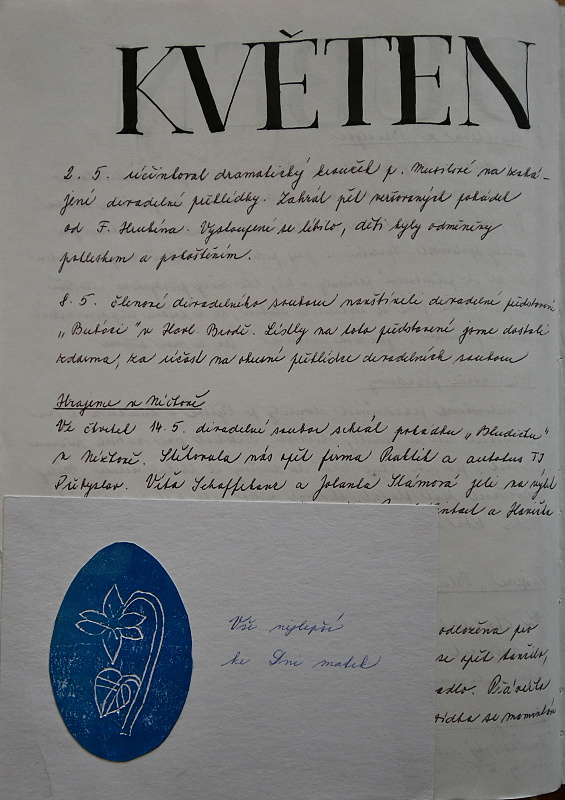 KVĚTEN
2. 5. účinkoval dramatický kroužek p. Musilové na
jené divadelní přehlídky. Zahrál pět veršovaných pohádek
od F. Hrubína. Vystoupení se líbilo, děti byly odměněny
potleskem a pohoštěním.
8. 5. členové divadelního souboru navštívili divadelní představení
„ " v Havl. Brodě. Lístky na toto představení jsme dostali
zdarma, za účast na okresní přehlídce divadelních souborů
Hrajeme v Nížkově
Ve čtvrtek 14. 5. divadelní soubor sehrál pohádku „Bludička"
v Nížkově. nás opět firma a autobus TJ
Přibyslav. Víťa a Jolanta Slámová jeli na
a
Vše nejlepší
ke Dni matek
odložena pro
se opět tančilo,
adlo.
se maminkám